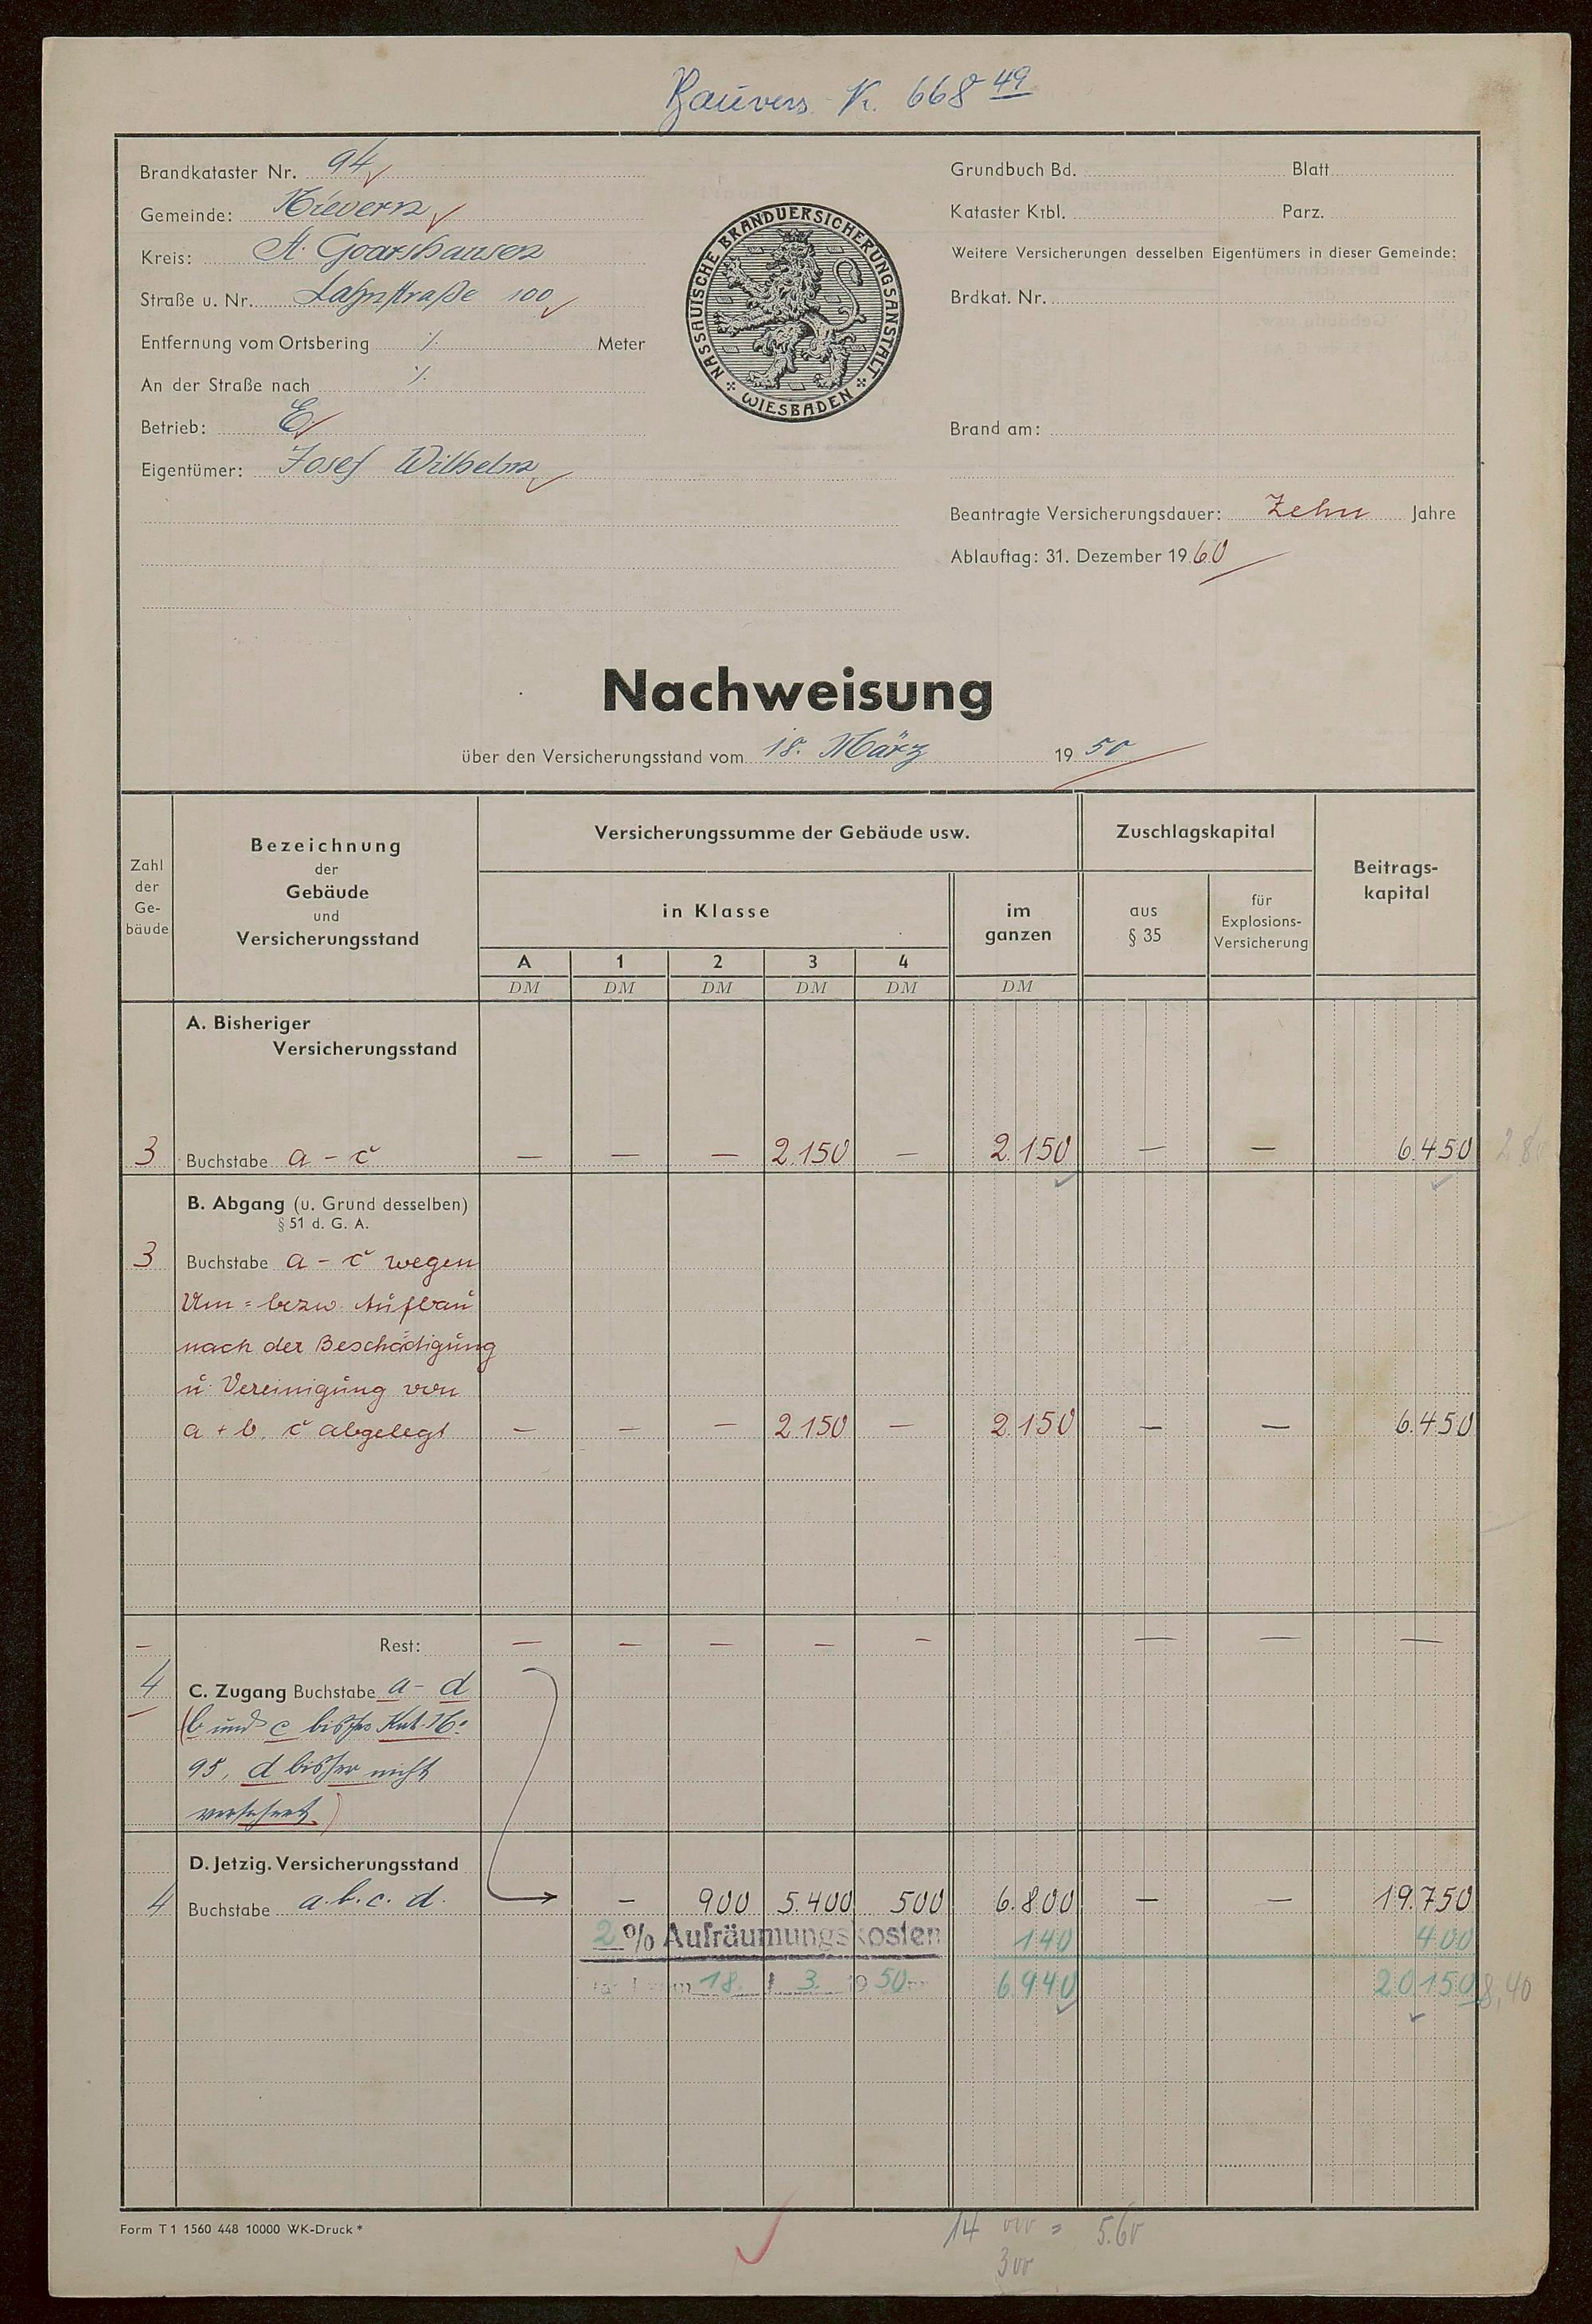 Bauvers. Nr. 668 49
Brandkataster Nr. 94
Gemeinde: Nievern
Kreis: St. Goarshausen
Straße u. Nr. Lahnstraße 100
Entfernung vom Ortsbering ./. Meter
An der Straße nach ./.
Betrieb: E
Eigentümer: Josef Wilhelm
NASSAUISCHE BRANDVERSICHERUNGSANSTALT
WIESBADEN
Grundbuch Bd. Blatt
Kataster Ktbl. Parz.
Weitere Versicherungen desselben Eigentümers in dieser Gemeinde:
Brdkat. Nr.
Brand am:
Beantragte Versicherungsdauer: Zehn Jahre
Ablauftag: 31. Dezember 1960
Nachweisung
über den Versicherungsstand vom 18. März 1950
Zahl der Ge- bäude
Bezeichnung
der
Gebäude
und
Versicherungsstand
Versicherungssumme der Gebäude usw.
in Klasse
A 1 2 3 4
DM DM DM DM DM
im ganzen
DM
Zuschlagskapital
aus § 35
für Explosions- Versicherung
Beitrags- kapital
A. Bisheriger
Versicherungsstand
3 Buchstabe a - c — — — 2.150 — 2.150 — — 6.450
B. Abgang (u. Grund desselben)
§ 51 d. G. A.
3 Buchstabe a - c wegen
Um= bezw. Aufbau
nach der Beschädigung
u. Vereinigung von
a + b, c abgelegt — — — 2.150 — 2.150 — — 6.450
— Rest: — — — — — — — —
4 C. Zugang Buchstabe a - d
(b und c bisher Kat. No:
95, d bisher nicht
versichert.)
D. Jetzig. Versicherungsstand
4 Buchstabe a. b. c. d. — 900 5.400 500 6.800 — — 19.750
2 % Aufräumungskosten 140 400
18. 3. 1950 6940 20150 8,40
Form T 1 1560 448 10000 WK-Druck *
14 000 = 5.60
300